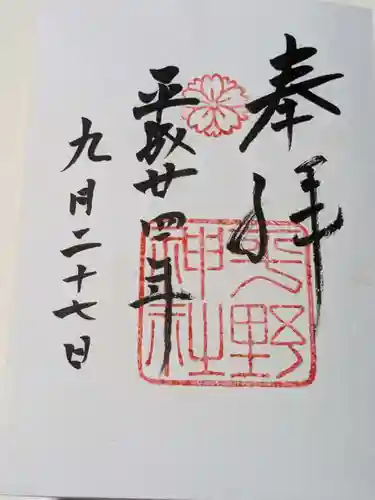 奉拝
平成廿四年
九月二十七日
野
神社